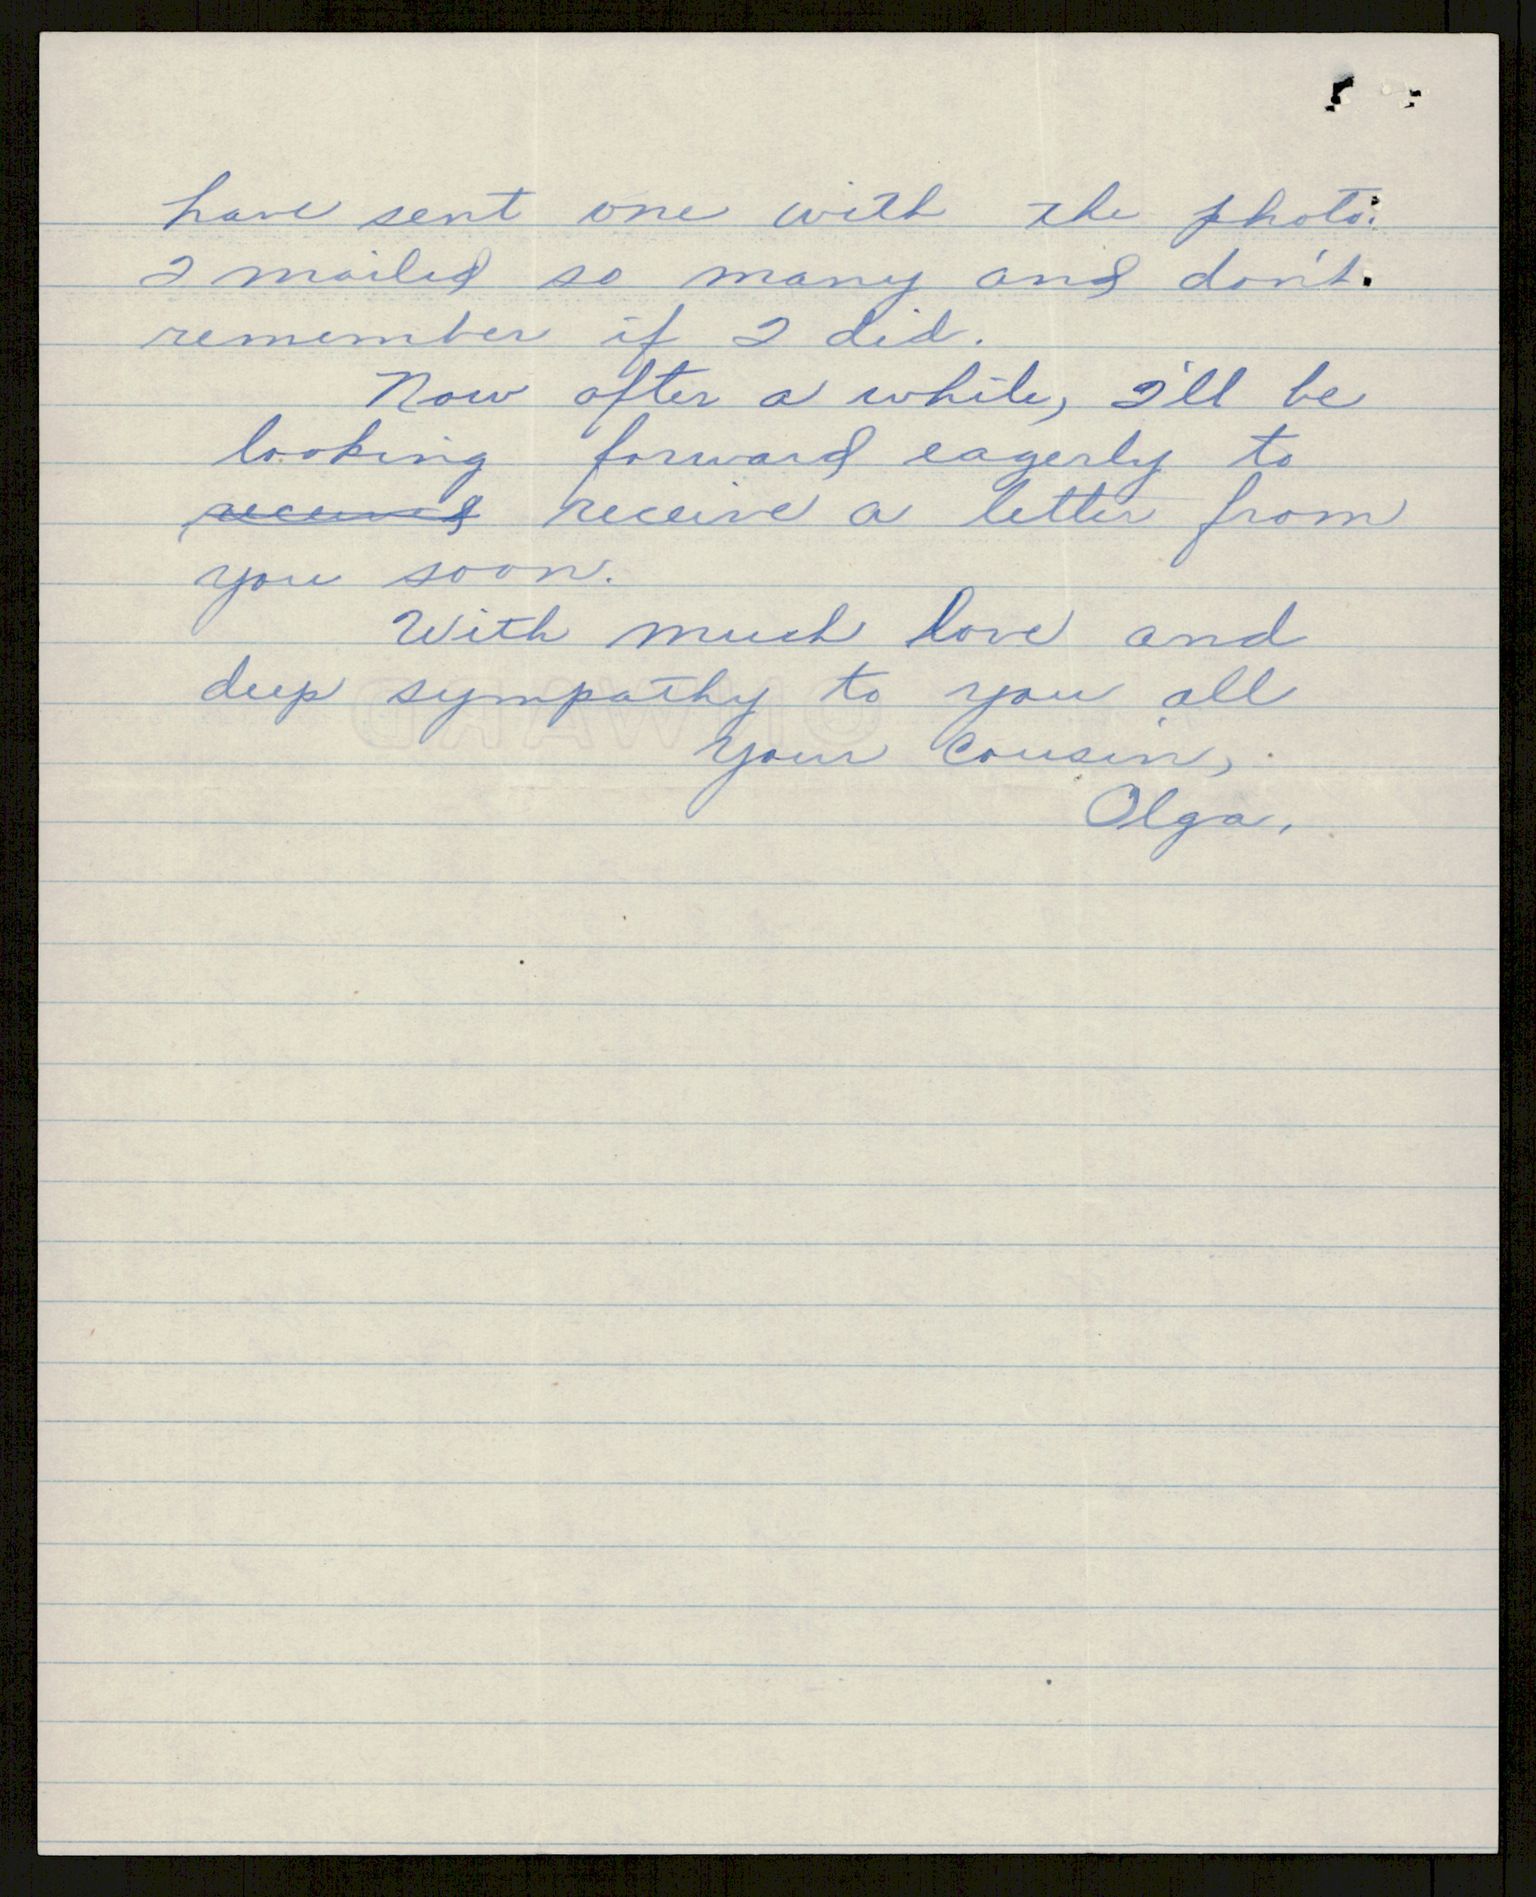 have sent one with the photo.
I mailed so many and don't
remember if I did.
Now after a while, I'll be
looking forward eagerly to
received receive a letter from
you soon.
With much love and
deep sympathy to you all
your cousin,
Olga.